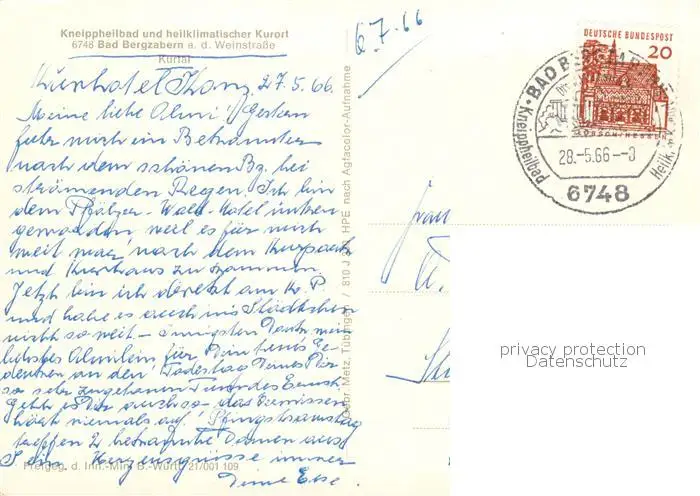 Kneippheilbad und heilklimatischer Kurort
6748 Bad Bergzabern a. d. Weinstraße
Kurtal
6.7.66
Kurhotel Kranz 27.5.66
Meine liebe Almi! Gestern
fuhr mich ein Bekannter
nach dem schönen Bg. bei
strömenden Regen. Ich bin
dem Pfälzer-Wald-Hotel untreu
geworden weil es für mich
weit war nach dem Kurpark
und Kurhaus zu kommen.
Jetzt bin ich direkt am K. P.
und habe es auch ins Städtchen
nicht so weit – innigsten Dank mein
liebstes Almilein für Dein treues Ge-
denken an den Todestag Deines Dir
so sehr zugetanen Freundes Ernst.
Geht es Dir auch so – das Vermissen
hört niemals auf. Pfingstsamstag
treffen 2 bekannte Damen aus
ein. Herzensgrüsse immer
Deine Else
Freigeg. d. Inn.-Min. B.-Württ. 21/001 109
Gebr. Metz, Tübingen / 810 J HPE nach Agfacolor-Aufnahme
DEUTSCHE BUNDESPOST
20
LORSCH/HESSEN
BAD BERGZABERN
Kneippheilbad
Heilk.
28.-5.66.-
6748
Frau
privacy protection
Datenschutz